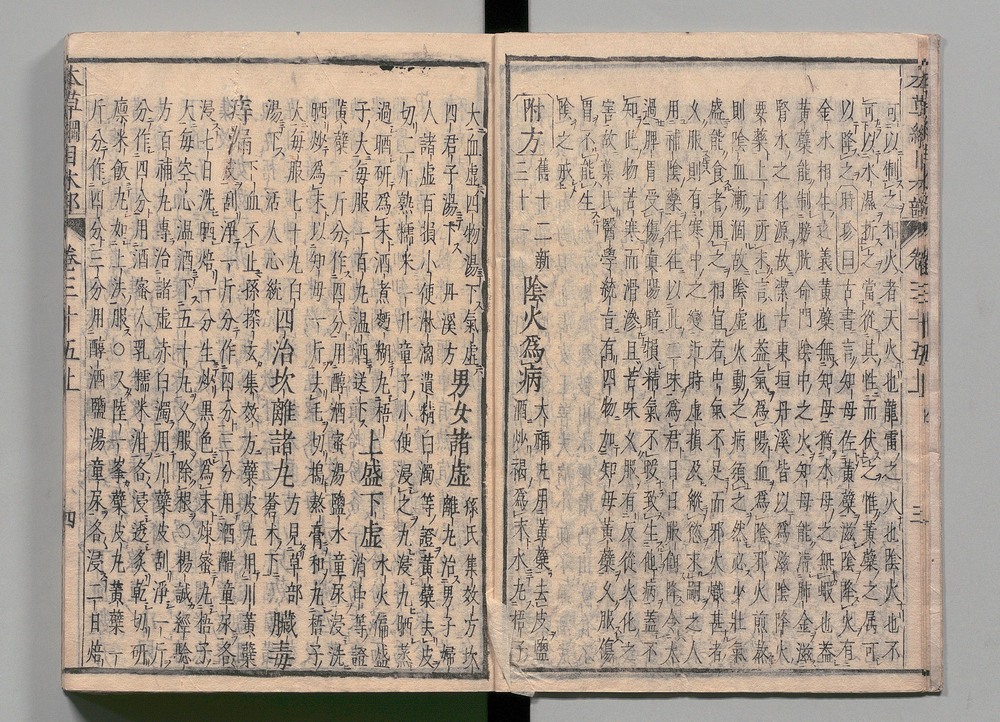 可以制之相火者天火也龍雷之火也陰火也不
可以水濕折之當從其性而伏之惟黃蘗之属可
以降之時珍曰古書言知母佐黃蘗滋陰降火有
金水相生之義黃蘗無知母猶水母之無蝦也盖
黃蘗能制膀胱命門陰中之火知母能清肺金滋
腎水之化源故潔古東垣丹溪皆以爲滋陰降火
要藥上古所未言也盖氣爲陽血爲陰邪火煎熬
則陰血漸涸故陰虛火動之病須之然必少壯氣
盛能食者用之相宜若中氣不足而邪火熾甚者
久服則有寒中之變近時虛損及縱慾求嗣之人
用補陰藥往往以此二味爲君日日服餌降令太
過脾胃受傷真陽暗損精氣不暖致生他病盖不
知此物苦寒而滑滲且苦味久服有反從火化之
害故葉氏醫學統旨有四物加知母黃蘗久服傷
胃不能生
陰之戒
附方 舊十二新三十一 陰火爲病 大補丸用黃蘗去皮鹽酒炒褐爲末水丸梧子
大血虛四物湯下氣虛
四君子湯下丹溪方 男女諸虛 孫氏集效方坎離丸治男子婦
人諸虛百損小便淋漓遺精白濁等證黃蘗去皮
切二斤熟糯米一升童子小便浸之九浸九晒蒸
過晒研爲末酒煮麪糊丸梧子大每服一百丸温酒送下 上盛下虛 水火偏盛消中等證
黃蘗一斤分作四分用醇酒蜜湯鹽水童尿浸洗
晒炒爲末以知母一斤去毛切搗熬膏和丸梧子
大每服七十丸白湯下活人心統 四治坎離諸丸 方見草部蒼木下 臟毒
痔漏 下血不止孫探玄集效方蘗皮丸用川黃蘗
皮刮淨一斤分作四分三分用酒醋童尿各
浸七日洗晒焙一分生炒黑色爲末煉蜜丸梧子
大每空心温酒下五十丸久服除根○楊誠經驗
方百補丸專治諸虛赤白濁用川蘗皮刮淨一斤
分作四分用酒蜜人乳糯米泔各浸透炙乾切研
廩米飯丸如上法服○又陸一峯蘗皮丸黃蘗一
斤分作四分三分用醇酒鹽湯童尿各浸二日焙
本草綱目木部 卷三十五上 四